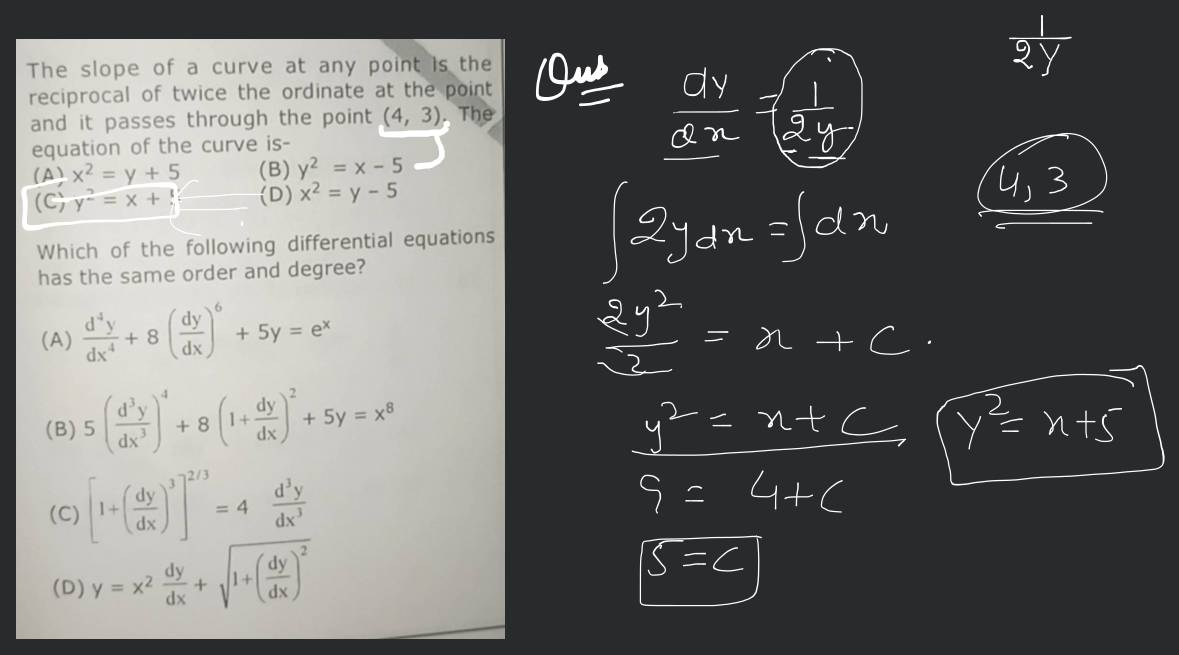 The slope of a curve at any point Is the
reciprocal of twice the ordinate at the point
and it passes through the point (4, 3). The
equation of the curve is-
(A) x² = y + 5 (B) y² = x - 5
(C) y² = x + (D) x² = y - 5
Which of the following differential equations
has the same order and degree?
(A) d⁴y/dx⁴ + 8 (dy/dx)⁶ + 5y = eˣ
(B) 5 (d³y/dx³)⁴ + 8 (1+ dy/dx)² + 5y = x⁸
(C) [1+(dy/dx)³]^2/3 = 4 d³y/dx³
(D) y = x² dy/dx + √(1+(dy/dx)²)
Ques
dy/dx = 1/2y
∫2y dx = ∫dx
2y²/2 = x + C.
y² = x + C
9 = 4+C
5 = C
1/2y
4, 3
y² = x+5